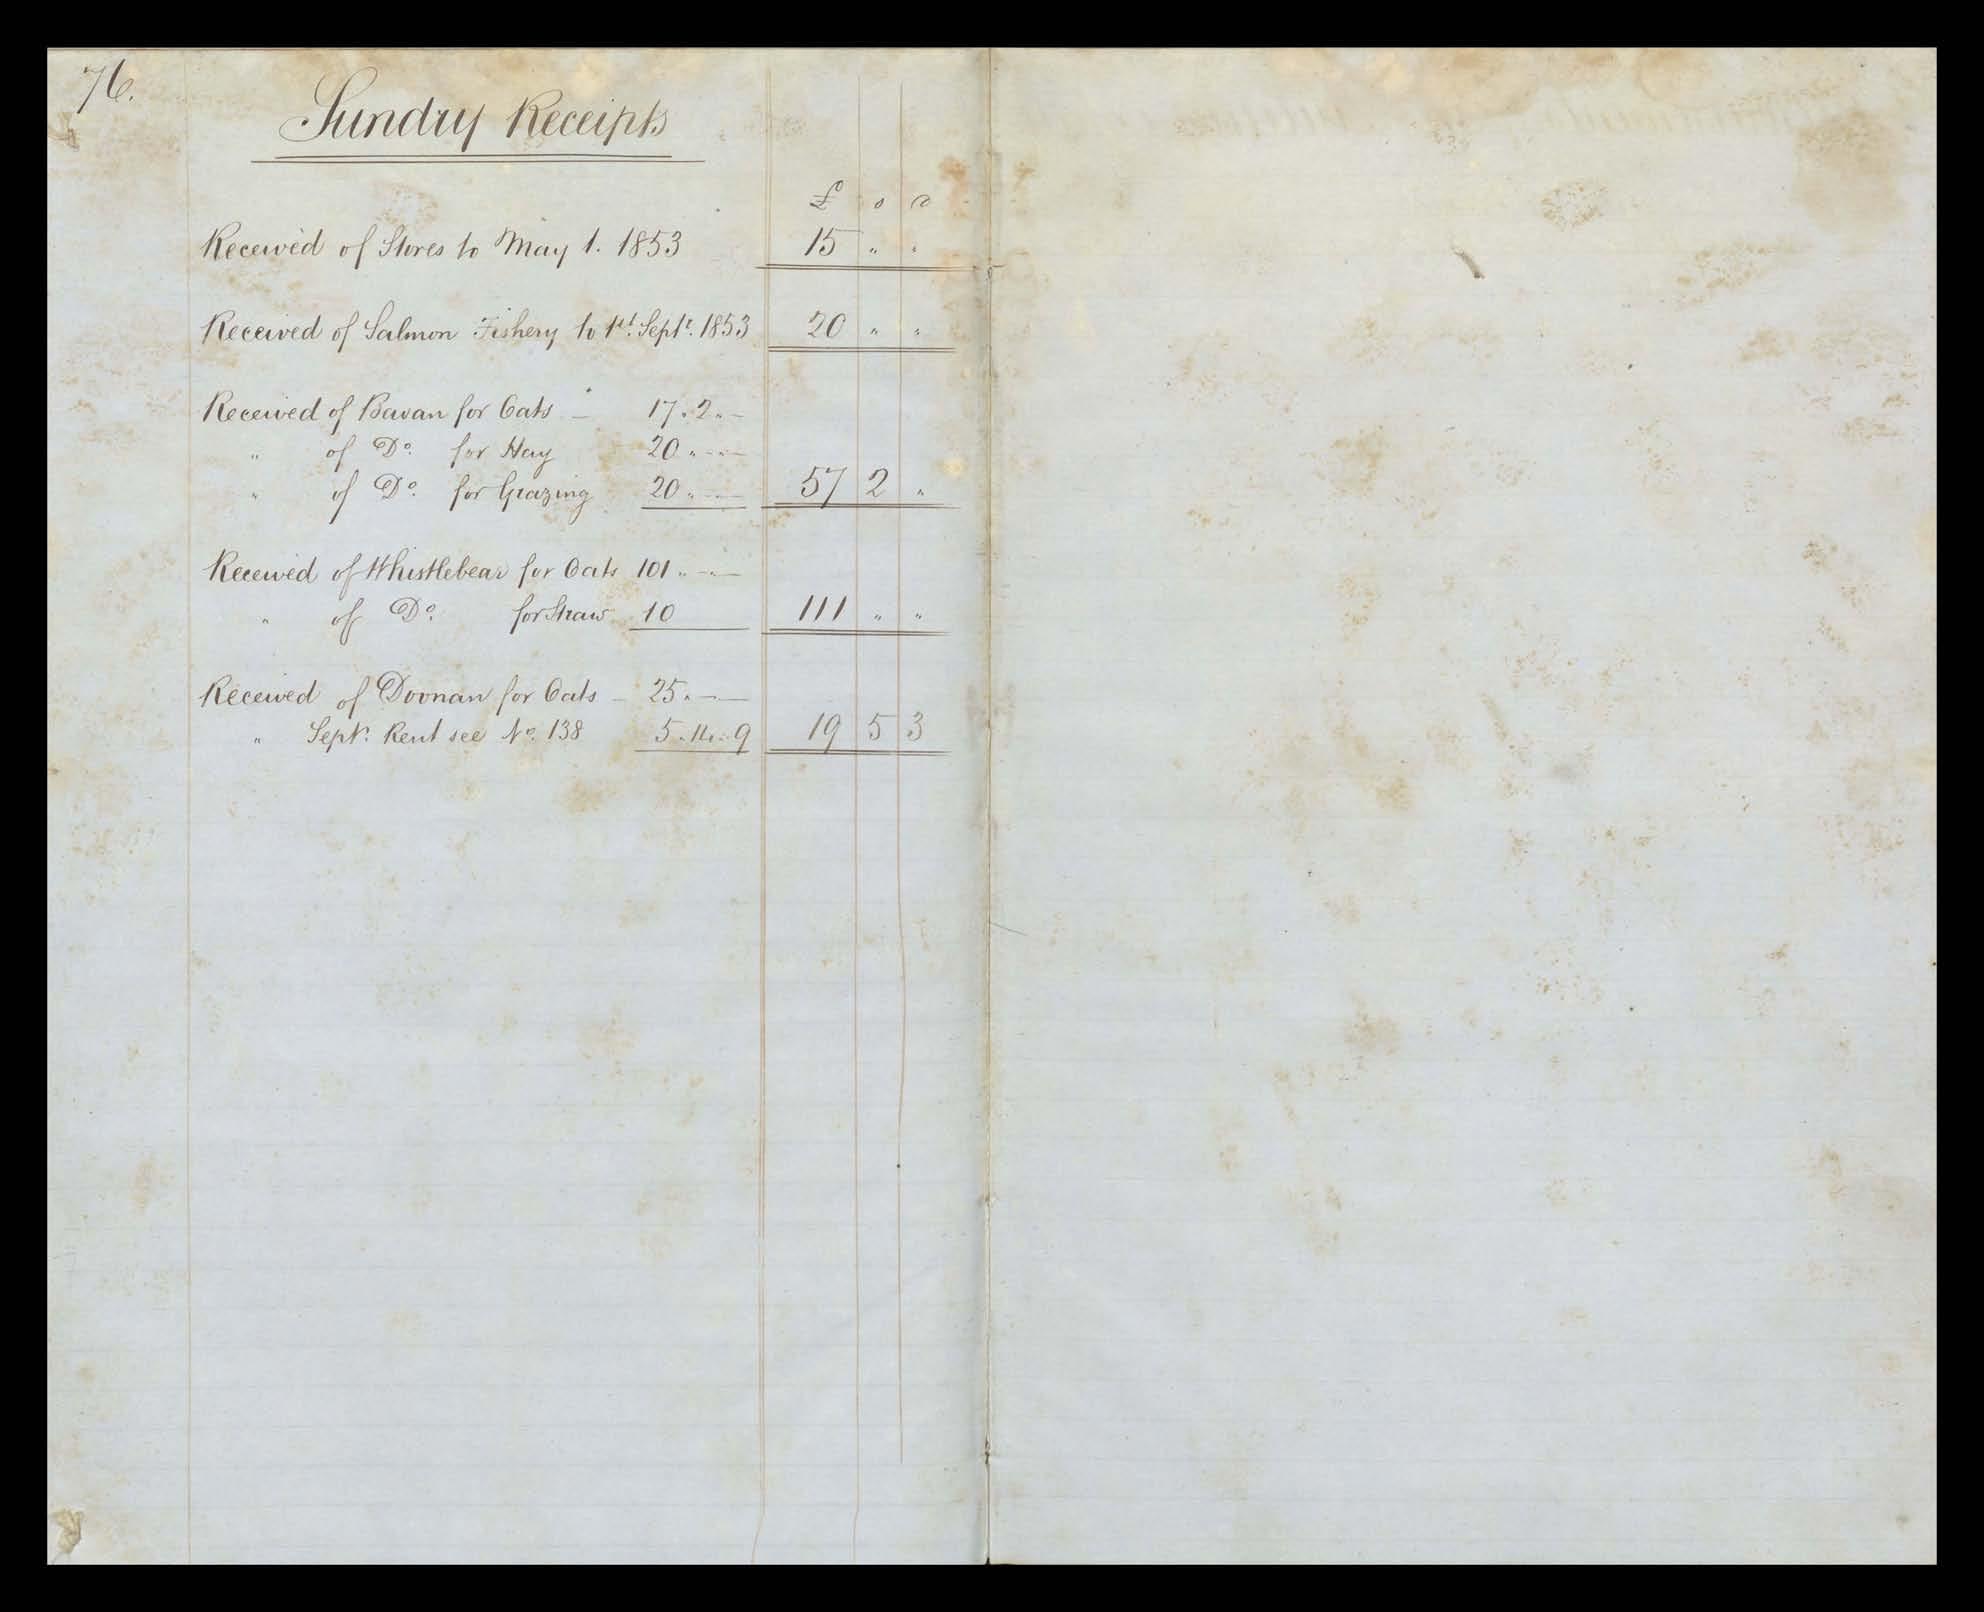 76.
Sundry Receipts
£ s d
Received of Stores to May 1. 1853 15 " "
Received of Salmon Fishery to 1st. Septr. 1853 20 " "
Received of Bavan for Oats – 17 " 2 " –
" of Do. for Hay 20 " – " –
" of Do. for Grazing 20 " – 57 2 "
Received of Whistlebear for Oats 101 " – " –
" of Do. for Straw 10 111 " "
Received of Doonan for Oats – 25 " – " –
" Septr. Rent see No. 138 5 " 14 " 9 19 5 3